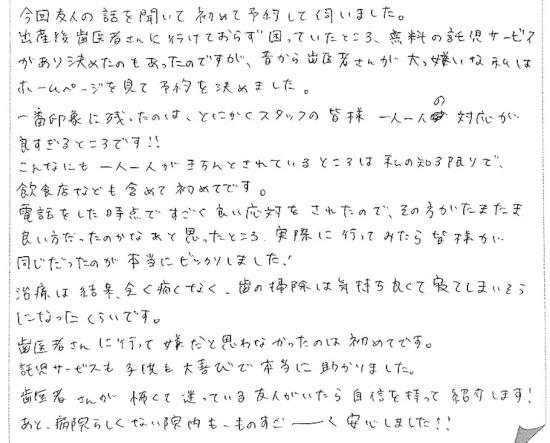 今回友人の話を聞いて初めて予約して伺いました。
出産後歯医者さんに行けておらず困っていたところ、無料の託児サービス
があり決めたのもあったのですが、昔から歯医者さんが大っ嫌いな私は
ホームページを見て予約を決めました。
一番印象に残ったのは、とにかくスタッフの皆様 一人一人の対応が
良すぎるところです!!
こんなにも一人一人がきちんとされているところは私の知る限りで、
飲食店なども含めて初めてです。
電話をした時点ですごく良い応対をされたので、その方がたまたま
良い方だったのかなぁと思ったところ、実際に行ってみたら皆様が
同じだったのが本当にビックリしました!
治療は結果、全く痛くなく、歯の掃除は気持ち良くて寝てしまいそう
になったくらいです。
歯医者さんに行って嫌だと思わなかったのは初めてです。
託児サービスも子供も大喜びで本当に助かりました。
歯医者さんが怖くて迷っている友人がいたら自信を持って紹介します!
あと、病院らしくない院内も、ものすご――く安心しました!!